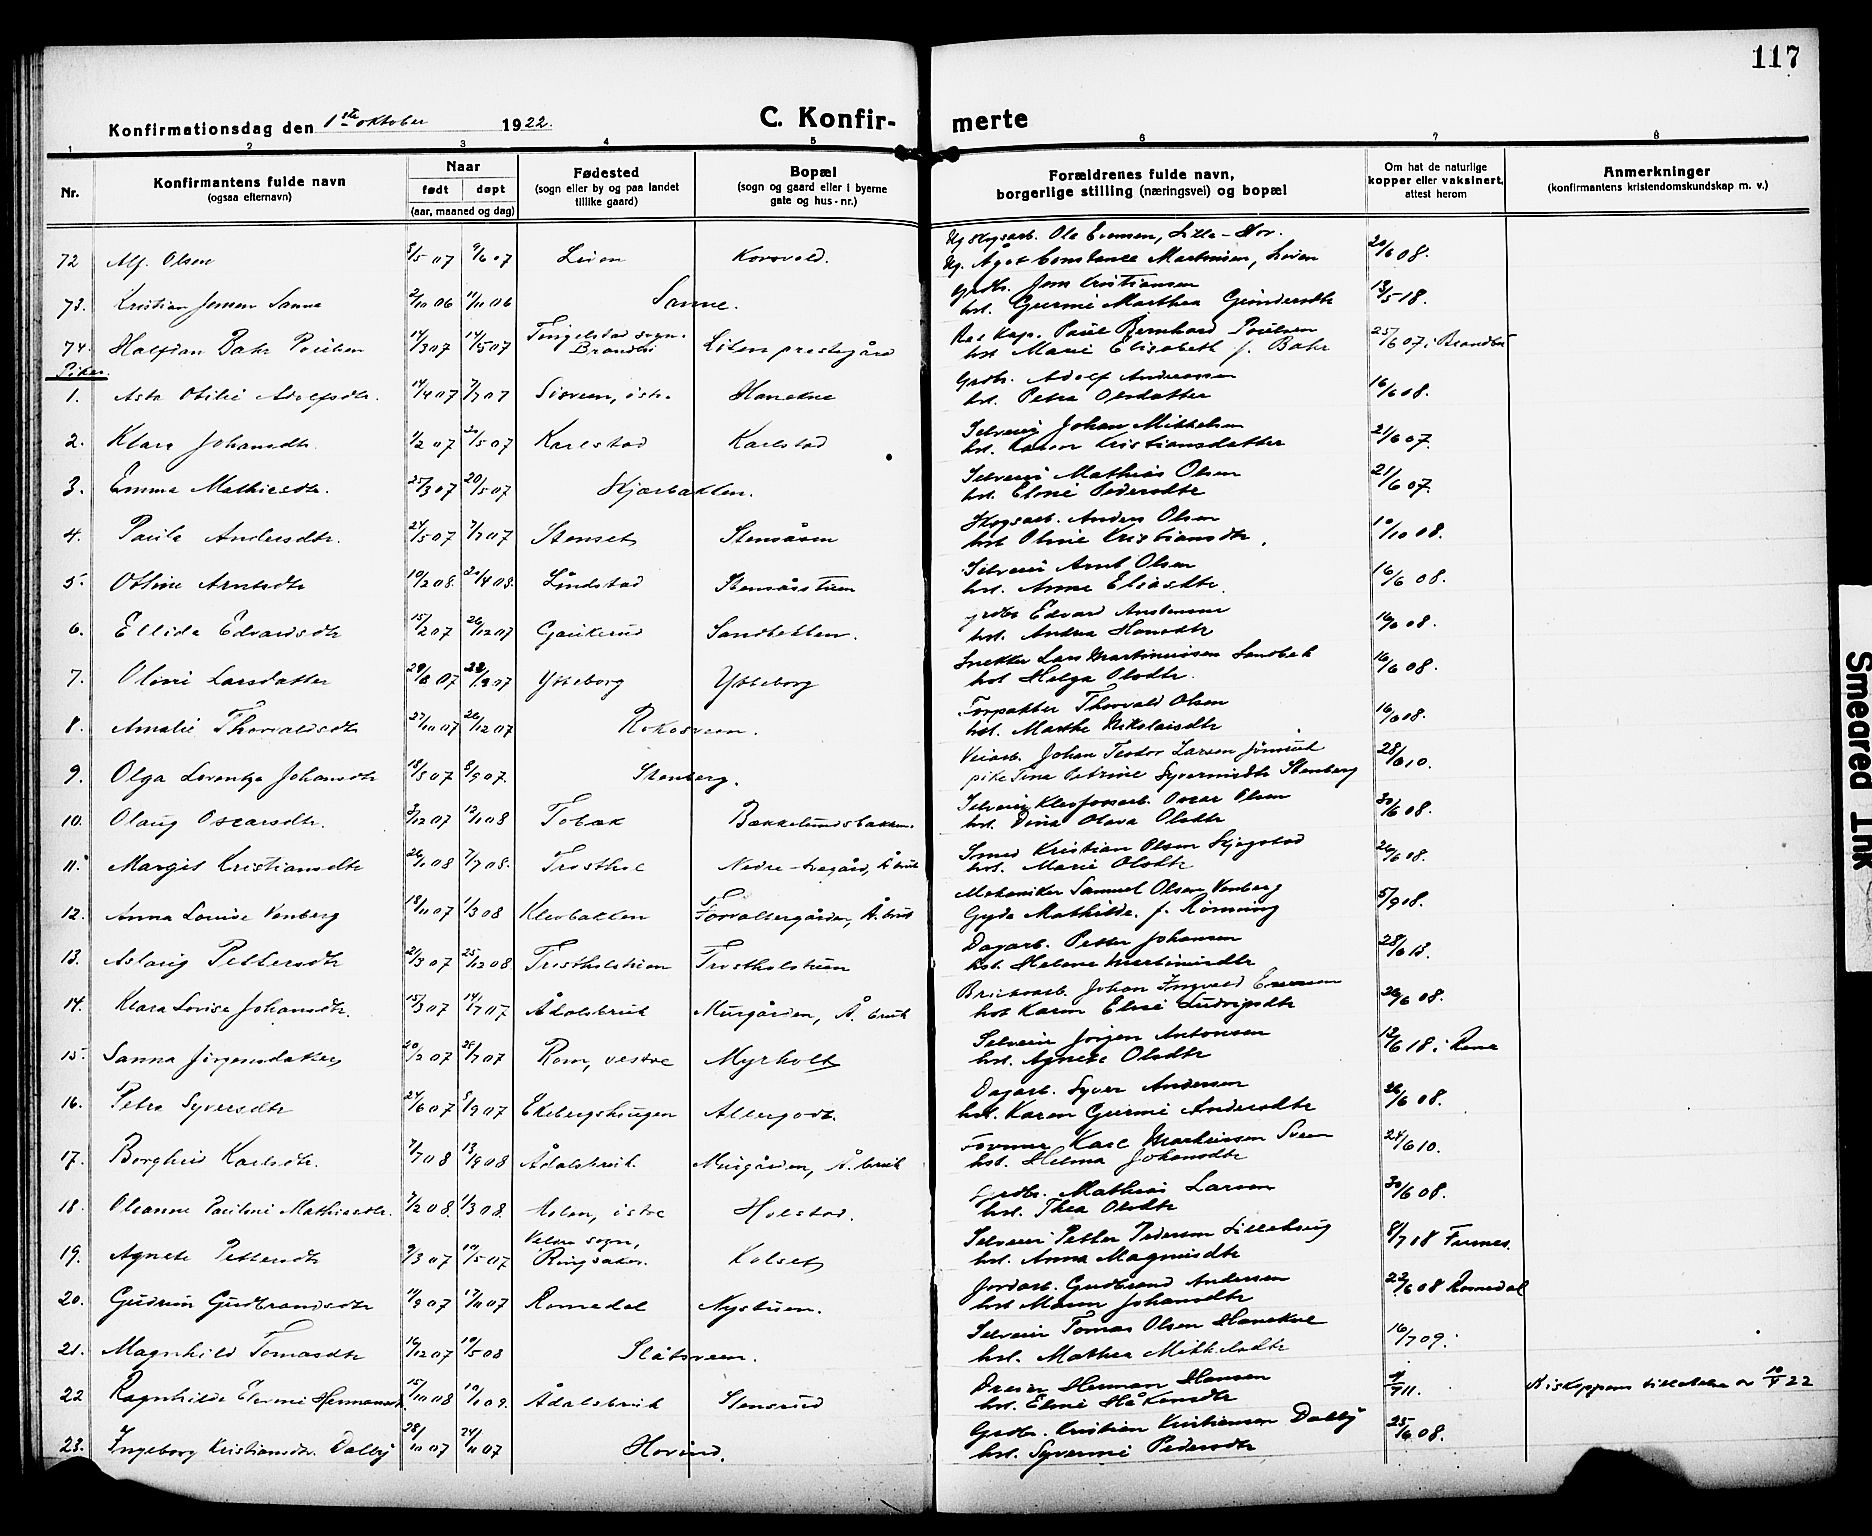 117
Konfirmationsdag den 1ste oktober 1922. C. Konfir-merte
1 2 3 4 5 6 7 8
Nr. Konfirmantens fulde navn (ogsaa efternavn) Naar født døpt (aar, maaned og dag) Fødested (sogn eller by og paa landet tillike gaard) Bopæl (sogn og gaard eller i byerne gate og hus-nr.) Forældrenes fulde navn, borgerlige stilling (næringsvei) og bopæl Om hat de naturlige kopper eller vaksinert, attest herom Anmerkninger (konfirmantens kristendomskundskap m. v.)
72 Alf. Olsen 8/5 07 9/6 07 Løiten Korsvold. Ug. Skogsarb. Ole Evensen, Lille-Hov.
Ug. Ågot Constance Martinsen, Løiten 20/6 08.
73. Kristian Jensen Sanne 2/10 06 11/11 06 Sanne. Grdbr. Jens Kristiansen
hst. Gurine Marthea Gundersdtr 13/5 18.
74. Halfdan Bahr Poulsen 14/3 07 14/5 07 Tingelstad sogn. Brandbu Løten prestegård Res. Kap. Paul Bernhard Poulsen
hst. Marie Elisabeth f. Bahr 25/6 07 i Brandbu
Piker.
1. Asta Otilie Adolfsdtr. 14/4 07 7/7 07 Sisveen, østr. Hanekne Grdbr. Adolf Andreassen
hst. Petra Olsdatter 16/6 08.
2. Klara Johansdtr. 1/2 07 20/5 07 Karlstad Karlstad Selveier Johan Mikkelsen
hst. Karen Kristiansdatter 21/6 07.
3. Emma Mathiasdtr. 25/3 07 20/5 07 Skjærbakken. Selveier Mathias Olsen
hst. Eline Pedersdtr 21/6 07.
4. Paula Andersdtr. 24/5 07 7/7 07 Stenset Stensåsen Skogsarb. Anders Olsen
hst Oline Kristiansdtr. 10/10 08.
5. Otline Arntsdtr 10/2 08. 20/4 08. Lundstad Stensåsstuen Selveier Arnt Olsen
hst. Anne Eliasdtr. 16/6 08.
6. Ellida Edvardsdtr 15/2 07 26/12 07 Gaukerud Sandbakken. Grdbr Edvard Anstensen
hst. Andrea Hansdtr 16/6 08.
7. Oline Larsdatter 29/6 07 22/9 07 Ytteborg Ytteborg Snekker Lars Martiniusen Sandbek
hst Helga Olsdtr. 16/6 08.
8. Amalie Thorvaldsdtr 27/10 07 26/12 07 Rokosveen. Forpakter Thorvald Olsen
hst. Marthe Nikolaisdtr 16/6 08.
9. Olga Lorentza Johansdtr 18/5 07 8/9 07. Stenberg. Veiarb. Johan Teodor Larsen
pike Tina Petrine Syverinsdtr Stenberg 28/6 10.
10. Olaug Oscarsdtr. 3/12 07 12/1 08 Tobæk Bækkelundsbakken. Selveier Oscar Olsen
hst. Dina Olava Olsdtr 30/6 08.
11. Margit Kristiansdtr 26/1 08 7/7 08. Trosthol Nedre Å. bruk Smed Kristian Olsen
hst. Marie Olsdtr 26/6 08.
12. Anna Louise Vonberg 18/11 07 1/3 08 Klevbakken Forvaltergården, Å. bruk Mekaniker Samuel Olsen Vonberg
Gyda Mathilde f. Rønning 5/9 08.
13. Aslaug Pettersdtr 21/3 07 25/12 08 Trostholstuen Trostholstuen Dagarb. Petter Johansen
hst. Helene Martiniusdtr 28/6 13.
14. Klara Lovise Johansdtr. 15/3 07 14/7 07 Ådalsbruk Murgården, Å. bruk Johan Ingvald
hst Karen Eline Ludvigsdtr 26/6 08.
15. Sanna Jørgensdatter 20/2 07 28/7 07 Rom, vestre Myrholt Selveier Jørgen Antonsen
hst. Agnete Olsdtr 12/6 18 i Rena
16. Petra Syversdtr 24/6 07 8/9 07 Ekebergshaugen Allergodt. Dagarb. Syver Andersen
hst. Karen Gurine Andersdtr 26/6 08.
17. Borghild Karlsdtr. 7/7 08 13/9 08 Ådalsbruk. Murgården, Å. bruk Former Karl Martinsen Sveen
hst. Helma Johansdtr 24/6 10.
18. Oleanne Pauline Mathiasdtr. 7/12 08. 1/3 08. østre Holstad. Grdbr. Mathias Larsen
hst. Thea Olsdtr 30/6 08.
19. Agnete Pettersdtr 9/3 07 19/5 07 Veldre sogn, Ringsaker. Kolset Selveier Petter Pedersen Lillehaug
hst. Anna Magnusdtr 8/7 18 Furnes.
20. Gudrun Gudbrandsdtr 14/9 07 17/11 07 Romedal Nystuen. Jordarb. Gudbrand Andersen
hst Maren Johansdtr 22/6 08 Romedal
21. Magnhild Tomasdtr 16/12 07 10/5 08 Slåtsveen. Selveier Tomas Olsen Hanekne
hst. Mathea Mikkelsdtr 16/7 09.
22 Ragnhilde Eline Hermansdtr. 15/10 08 10/1 09. Ådalsbruk Stensrud Dreier Herman Hansen
hst. Eline Håkonsdtr 11. Biskoppens tillatelse av 22
23. Ingeborg Kristiansdtr. Dalby 28/10 07 24/11 07 Hovind. Grdbr. Kristian Kristiansen Dalby
hst. Syverine Pedersdtr 25/6 08.
Smeared Ink